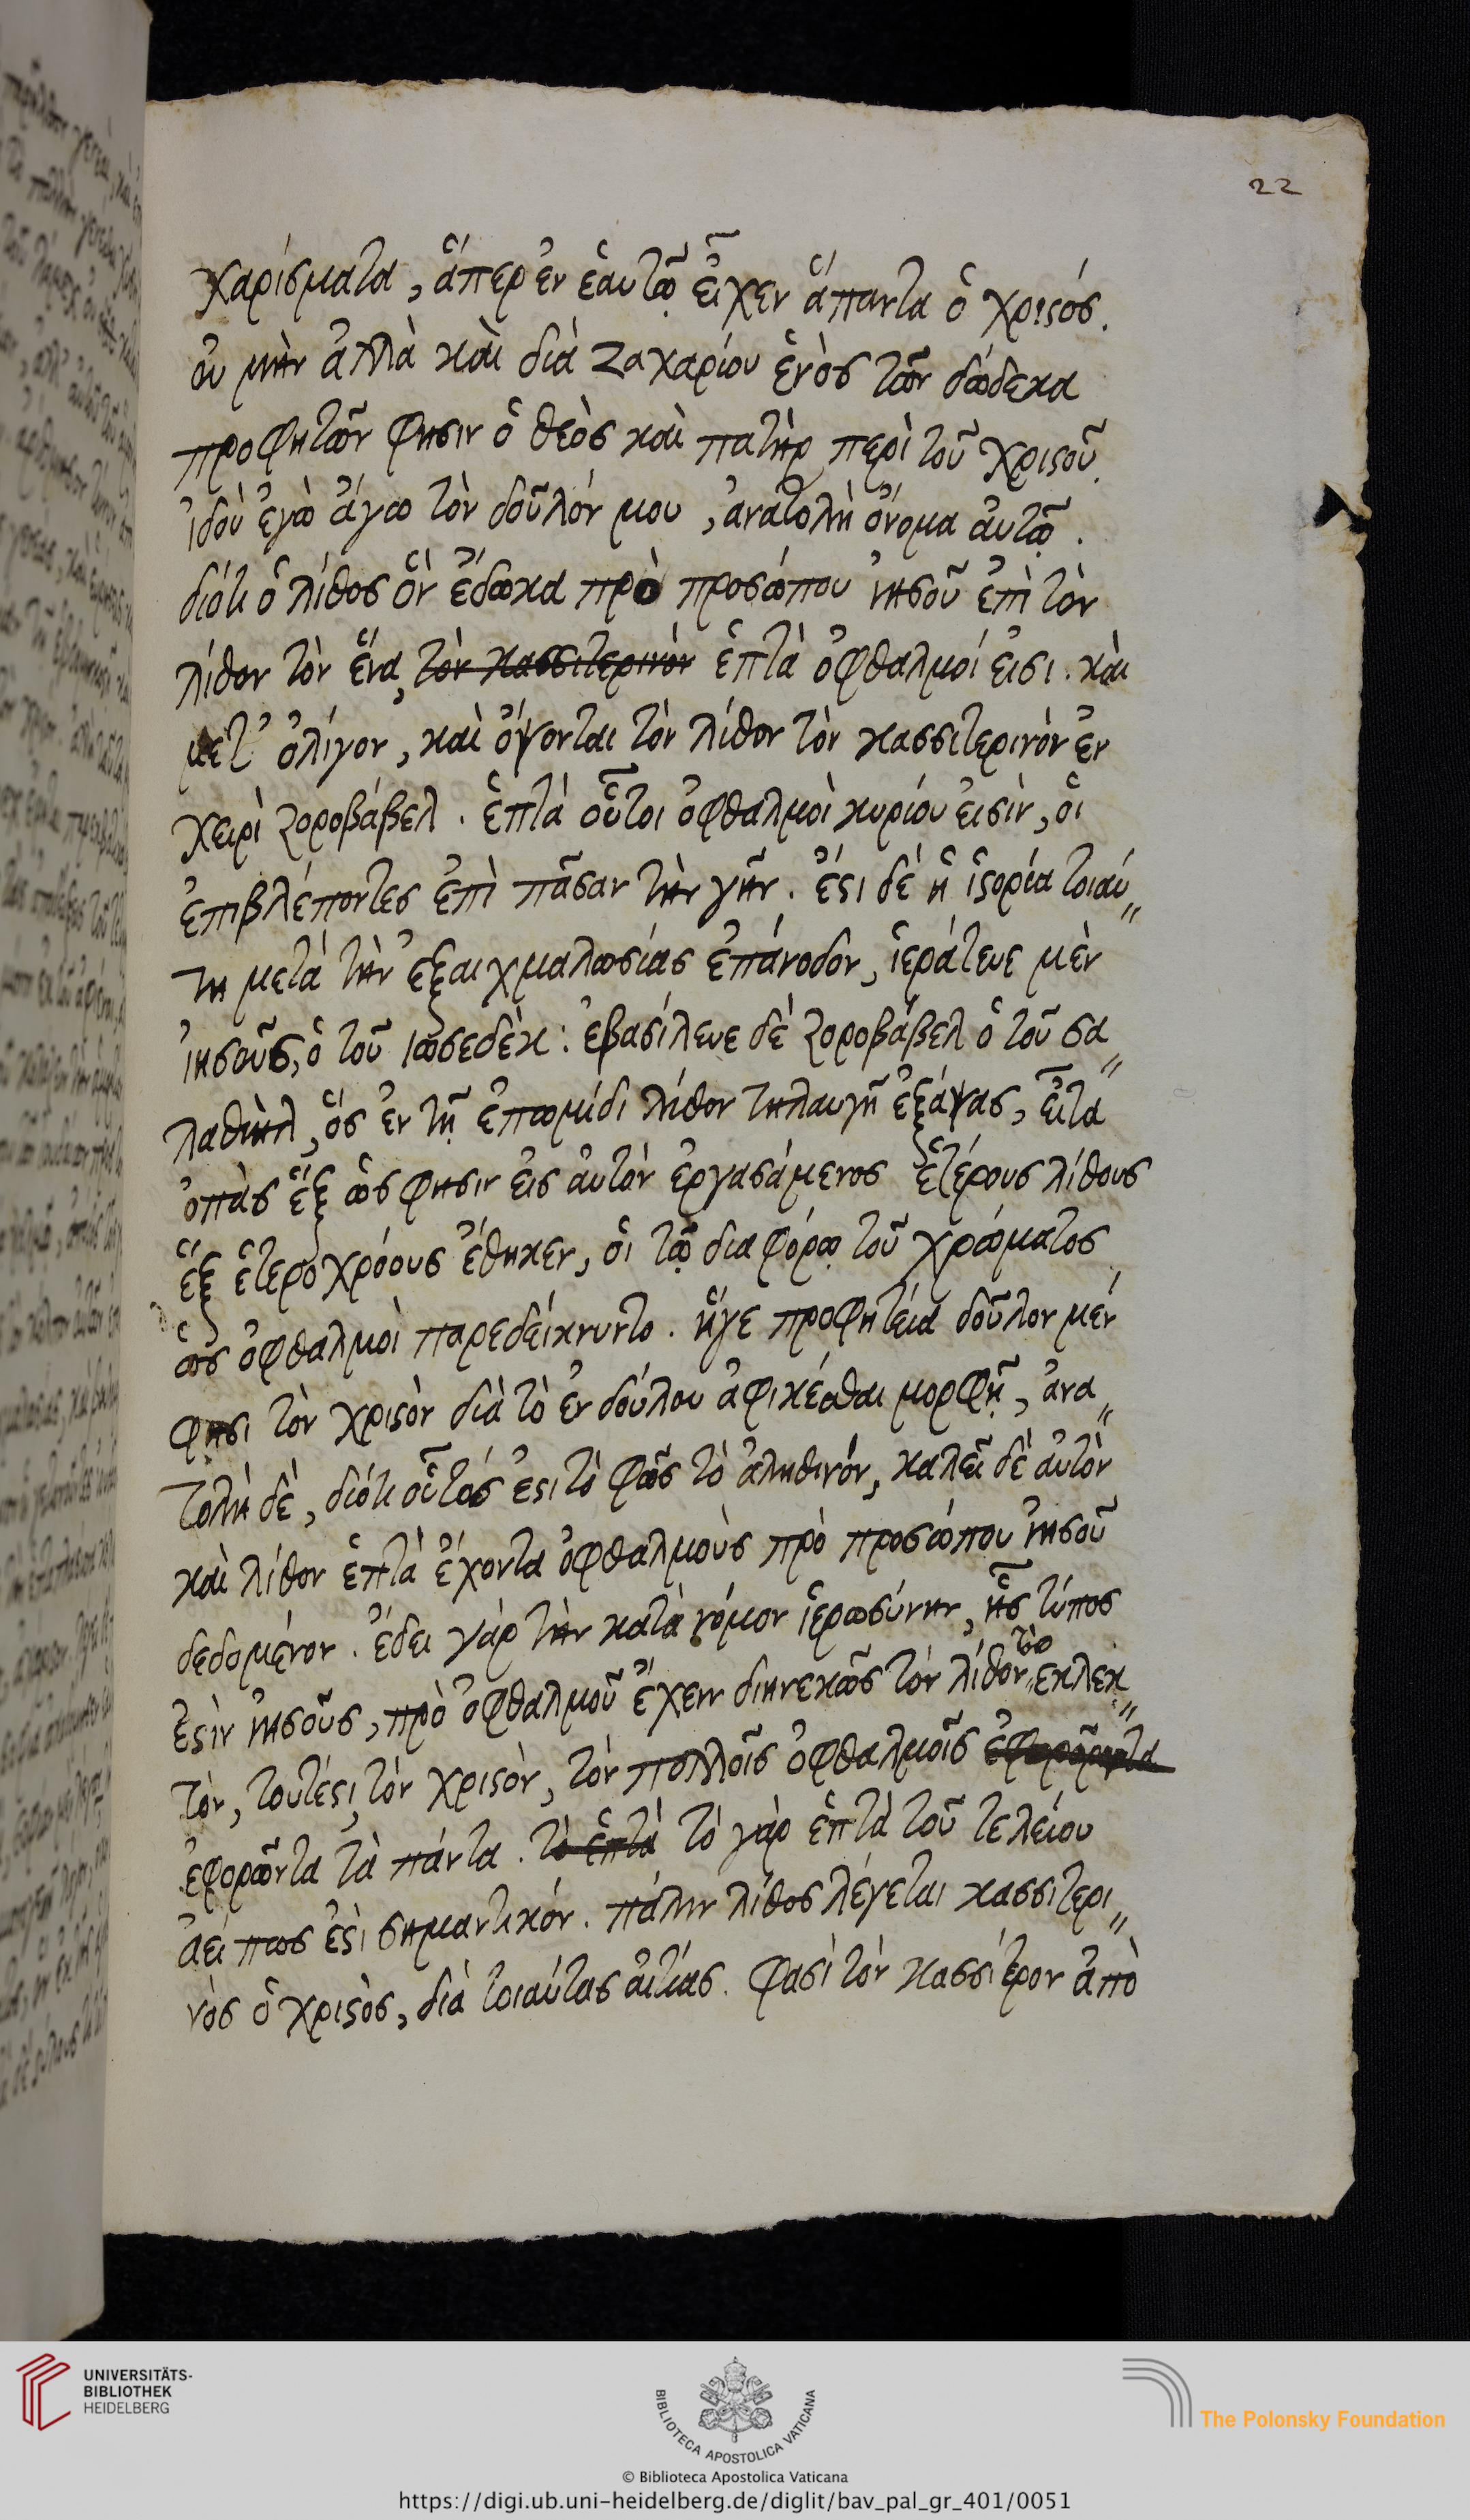 22
χαρίσματα, ἅπερ ἐν ἑαυτῷ εἶχεν ἅπαντα ὁ χριϛός.
ου μὴν ἀλλὰ καὶ διὰ Ζαχαρίου ἑνὸς τῶν δώδεκα
προφητῶν φησιν ὁ θεὸς καὶ πατὴρ περὶ τοῦ χριϛοῦ.
ἰδοὺ ἐγὼ ἄγω τὸν δοῦλόν μου, ἀνατολὴ ὄνομα ἀυτῷ.
διότι ὁ λίθος ὃν ἔδωκα πρὸ προσώπου ἰησοῦ ἐπὶ τὸν
λίθον τὸν ἕνα, τὸν κασσιτερινὸν ἑπτὰ ὀφθαλμοί εἰσι. καὶ
μετ' ὀλίγον, καὶ ὄψονται τὸν λίθον τὸν κασσιτερινὸν ἐν
χειρὶ ζοροβάβελ. ἑπτὰ οὗτοι ὀφθαλμοὶ κυρίου εἰσὶν, ὁι
ἐπιβλέποντες ἐπὶ πᾶσαν τὴν γῆν. ἔϛι δὲ ἡ ἱϛορία τοιαύ〃
τη μετὰ τὴν ἐξαιχμαλωσίας ἐπάνοδον, ἱεράτευε μὲν
ἰησοῦς, ὁ τοῦ ἰωσεδὲκ: ἐβασίλευε δὲ ζοροβάβελ ὁ τοῦ σα〃
λαθιὴλ, ὅς ἐν τῇ ἐπωμίδι λίθον τηλαυγῆ ἐξάψας, εἶτα
ὀπὰς ἓξ ὥς φησιν εἰς ἀυτὸν ἐργασάμενος ἑτέρους λίθους
ἓξ ἑτεροχρόους ἔθηκεν, ὁι τῷ διαφόρῳ τοῦ χρώματος
ὡς ὀφθαλμοὶ παρεδείκνυντο. ἥγε προφητεία δοῦλον μέν
φησι τὸν χριϛὸν διὰ τὸ ἐν δούλου ἀφικέσθαι μορφῇ, ἀνα〃
τολὴ δὲ, διότι οὗτός ἐϛι τὸ φῶς τὸ ἀληθινόν, καλεῖ δὲ ἀυτὸν
καὶ λίθον ἑπτὰ ἔχοντα ὀφθαλμοὺς πρὸ προσώπου ἰησοῦ
δεδομένον. ἔδει γὰρ τὴν κατὰ νόμον ἱερωσύνην, ἧς τύπος
ἐϛὶν ἰησοῦς, πρὸ ὀφθαλμοῦ ἔχειν διηνεκῶς τὸν λίθον τὸν ἐκλεκ〃
τὸν, τουτέϛι, τὸν χριϛὸν, τὸν πολλοῖς ὀφθαλμοῖς
ἐφορῶντα τὰ πάντα. τὸ ἑπτὰ τὸ γὰρ ἑπτὰ τοῦ τελείου
ἀεί πως ἐϛὶ σημαντικόν. πάλιν λίθος λέγεται κασσιτερι〃
νὸς ὁ χριϛὸς, διὰ τοιαύτας ἀιτίας. φασὶ τὸν κασσίτερον ἀπὸ
UNIVERSITÄTS-
BIBLIOTHEK
HEIDELBERG
BIBLIOTECA APOSTOLICA VATICANA
The Polonsky Foundation
© Biblioteca Apostolica Vaticana
https://digi.ub.uni-heidelberg.de/diglit/bav_pal_gr_401/0051